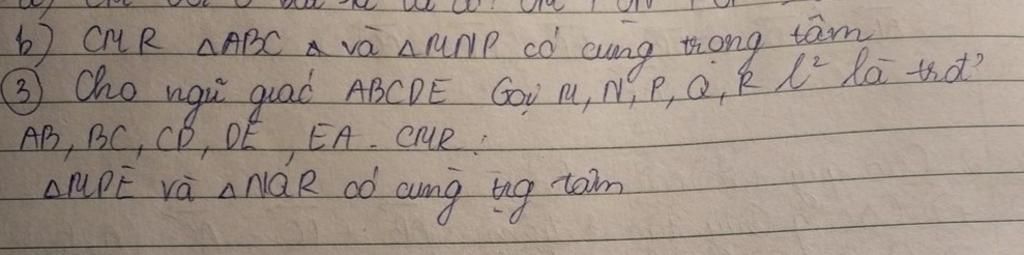 b) CMR △ABC △ và △MNP có cùng trọng tâm
③ Cho ngũ giác ABCDE Gọi M, N, P, Q, R l² là trđ'
AB, BC, CD, DE, EA. CMR:
△MPE và △NQR có cùng trg tâm